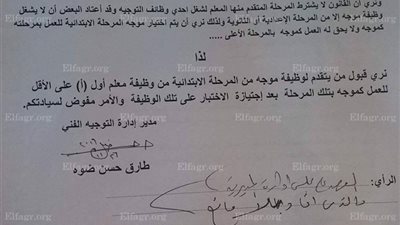 ونري أن القانون لا يشترط المرحلة المتقدم منها المعلم لشغل إحدي وظائف التوجيه وقد أعتاد البعض أن لا يشغل
وظيفة موجه إلا من المرحلة الإعدادية أو الثانوية ولذلك نري أن يتم اختيار موجه المرحلة الابتدائية للعمل بمرحلته
كموجه ولا يحق له العمل كموجه بالمرحلة الأعلى .
لذا
نري قبول من يتقدم لوظيفة موجه من المرحلة الابتدائية من وظيفة معلم أول (أ) على الأقل
للعمل كموجه بتلك المرحلة بعد إجتيازة الاختبار على تلك الوظيفة والأمر مفوض لسيادتكم.
مدير إدارة التوجيه الفني
طارق حسن ضوه
الرأي:
Elfagr.org Elfagr.org Elfagr.org Elfagr.org